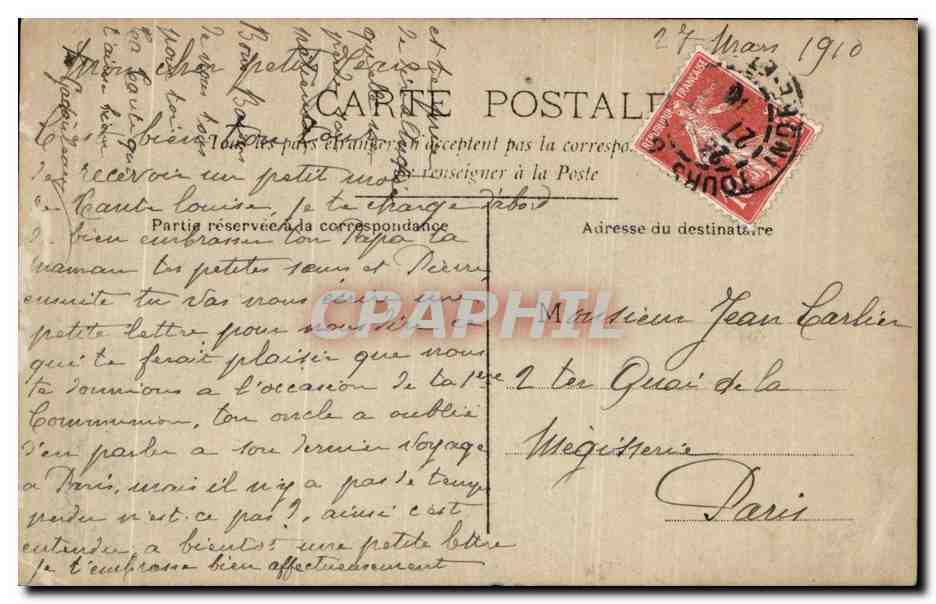 27 Mars 1910
Mon cher petit Jean
CARTE POSTALE
C'est bien ton tour
Tous les pays étrangers n'acceptent pas la correspo
de recevoir un petit mot
renseigner à la Poste
de Tante Louise, je te charge d'abord
Partie réservée à la correspondance
de bien embrasser ton Papa ta
maman tes petites sœurs et Pierre
ensuite tu vas nous écrire une
petite lettre pour nous dire ce
qui te ferait plaisir que nous
te donnions a l'occasion de ta 1ère
Communion, ton oncle a oublié
d'en parler a son dernier voyage
a Paris, mais il n'y a pas de temps
perdu n'est-ce pas?, ainsi c'est
entendu, a bientot une petite lettre
je t'embrasse bien affectueusement
et
de
Bons Baisers
de nous tous
pour toi
ta tante qui
t'aime bien
Adresse du destinataire
Monsieur Jean Carlier
2 ter Quai de la
Mégisserie
Paris
REPUBLIQUE FRANÇAISE
TOURS
CPAPHIL